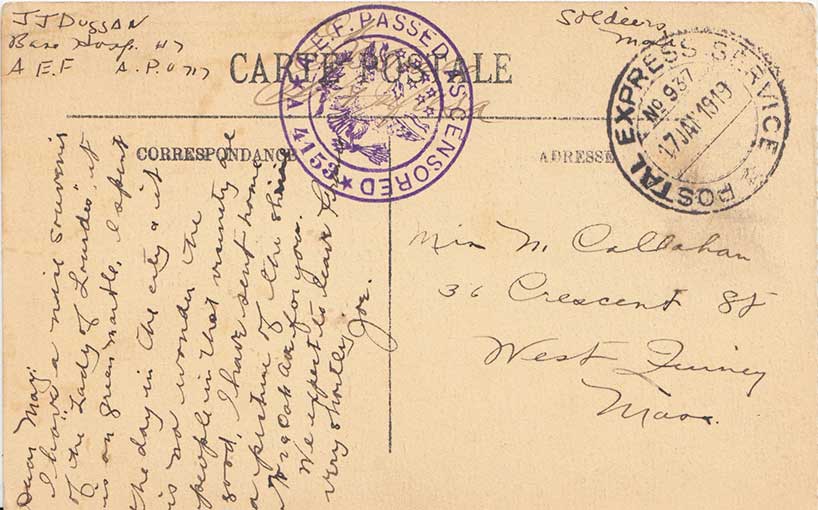 J J Duggan
Base Hosp. 117
A E F A.P.O 717
Soldiers
Mail
CARTE POSTALE
A.E.F. PASSED AS CENSORED
A 4153
POSTAL EXPRESS SERVICE
No 937
17 JAN 1919
CORRESPONDANCE
ADRESSE
Dear May:
I have a nice souvenir
of the Lady of Lourdes, it
is on green marble, I spent
the day in the city & it
is no wonder the
people in that vicinity are
good, I have sent home
a picture of the shrine
for you.
We expect to leave
very shortly Joe.
Miss M. Callahan
36 Crescent St
West Quincy
Mass.